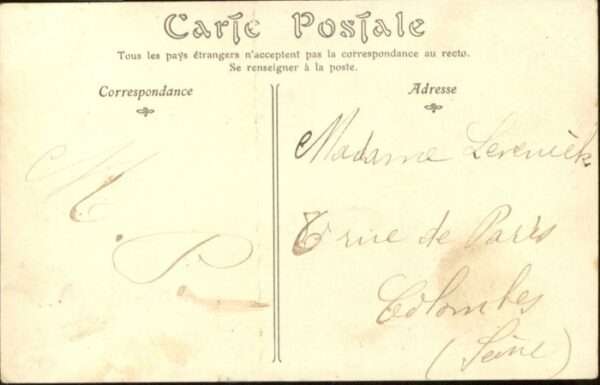 Carte Postale
Tous les pays étrangers n'acceptent pas la correspondance au recto.
Se renseigner à la poste.
Correspondance
M.
P.
Adresse
Madame
rue de Paris
Colombes
(Seine)